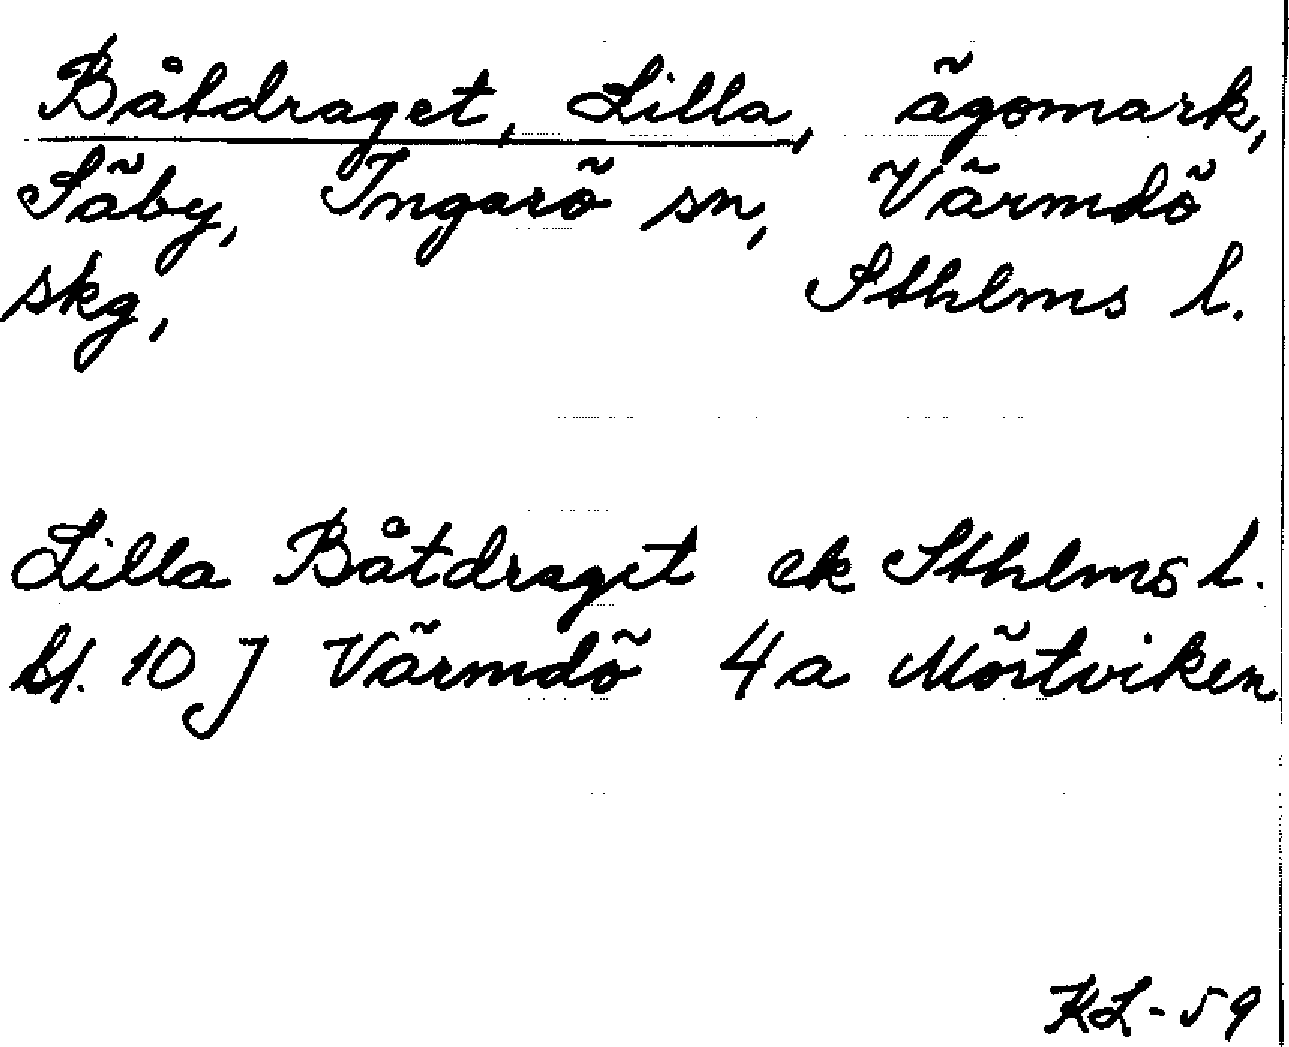 Båtdraget, Lilla, ägomark,
Säby, Ingarö sn, Värmdö
skg, Sthlms l.
Lilla Båtdraget ek Sthlms l.
bl. 10 J Värmdö 4a Mörtviken
KL-59